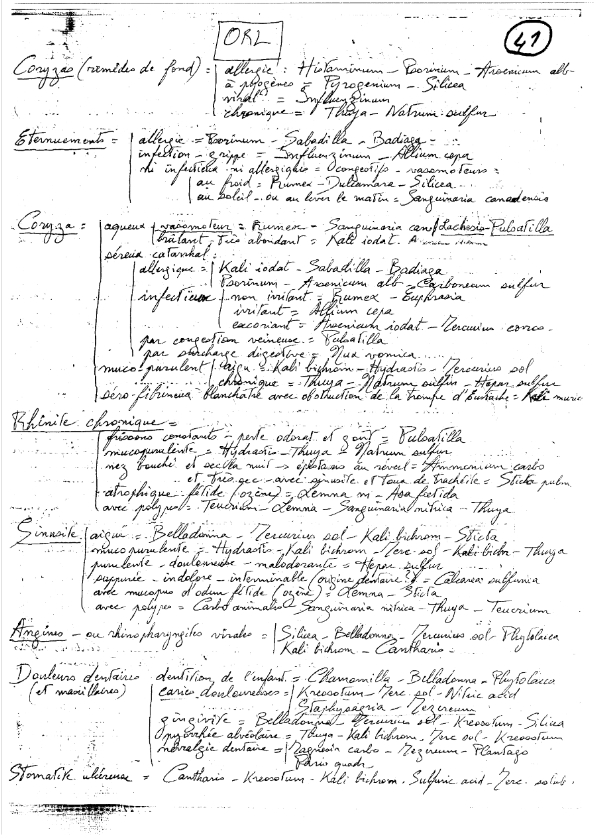 ORL
41
Coryzas (remèdes de fond) = allergie : Histaminum - Psorinum - Arsenicum alb
à pyogènes = Pyrogenium - Silicea
viral = Influenzinum
chronique = Thuya - Natrum sulfur
Eternuements = allergie = Psorinum - Sabadilla - Badiaga
infection - grippe = Influenzinum - Allium cepa
ni infectieux ni allergique = congestifs - vasomoteurs =
au froid = Rumex - Dulcamara - Silicea
au soleil - ou au lever le matin = Sanguinaria canadensis
Coryza = aqueux vasomoteur = Rumex - Sanguinaria can Lachesis - Pulsatilla
brûlant, très abondant = Kali iodat.
séreux catarrhal :
allergique = Kali iodat - Sabadilla - Badiaga
Psorinum - Arsenicum alb - Carboneum sulfur
infectieux non irritant = Rumex - Euphrasia
irritant = Allium cepa
excoriant = Arsenicum iodat - Mercurius corros.
par congestion veineuse = Pulsatilla
par surcharge digestive = Nux vomica
muco purulent aigu = Kali bichrom - Hydrastis - Mercurius sol
chronique = Thuya - Natrum sulfur - Hepar sulfur
séro-fibrineux blanchâtre avec obstruction de la trompe d'Eustache = Kali muric
Rhinite chronique =
frissons constants - perte odorat et goût = Pulsatilla
mucopurulente = Hydrastis - Thuya - Natrum sulfur
nez bouché et sec la nuit → épistaxis au réveil = Ammonium carbo
et très sec - avec sinusite et toux de trachéite = Sticta pulm
atrophique fétide (ozène) = Lemna m - Asa foetida
avec polypes = Teucrium - Lemna - Sanguinaria nitrica - Thuya
Sinusite aiguë = Belladonna - Mercurius sol - Kali bichrom - Sticta
muco purulente = Hydrastis - Kali bichrom - Merc sol - Kali bichr - Thuya
purulente - douloureuse - malodorante = Hepar sulfur
suppurée - indolore - interminable (origine dentaire) = Calcarea sulfurica
avec mucopus et odeur fétide (ozène) = Lemna - Sticta
avec polypes = Carbo animalis - Sanguinaria nitrica - Thuya - Teucrium
Angines - ou rhinopharyngites virales = Silicea - Belladonna - Mercurius sol - Phytolacca
Kali bichrom - Cantharis
Douleurs dentaires dentition de l'enfant = Chamomilla - Belladonna - Phytolacca
(et maxillaires) caries douloureuses = Kreosotum - Merc sol - Nitric acid
Staphysagria - Mezereum
gingivite = Belladonna - Mercurius sol - Kreosotum - Silicea
pyorrhée alvéolaire = Thuya - Kali bichrom - Merc sol - Kreosotum
névralgie dentaire = Magnesia carbo - Mezereum - Plantago
Paris quadr
Stomatite ulcéreuse = Cantharis - Kreosotum - Kali bichrom. Sulfuric acid - Merc. solub.